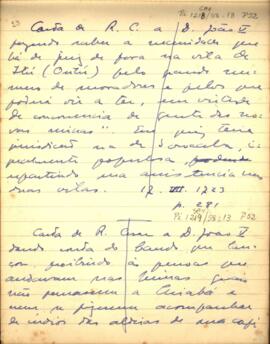 Carta de R. C. a D. João V
fazendo saber a necessidade que
há de juiz de fora na vila de
Itú (Outú) pelo grande nu-
mero de moradores e pelos que
poderá vir a ter, em virtude
da concorrencia de gente das no-
vas minas". Em que tenha
jurisdição na de Sorocaba, i-
gualmente populosa,
repartindo sua assistencia nas
duas vilas. 17. VII. 1723
p. 281
P52
Carta de R. Cesar a D. João V
dando conta do bando que lan-
çou proibindo às pessoas que
andavam nas Minas Gerais
não passarem a Cuiabá e
nem se fizerem acompanhar
de indios das aldeias de sua capi